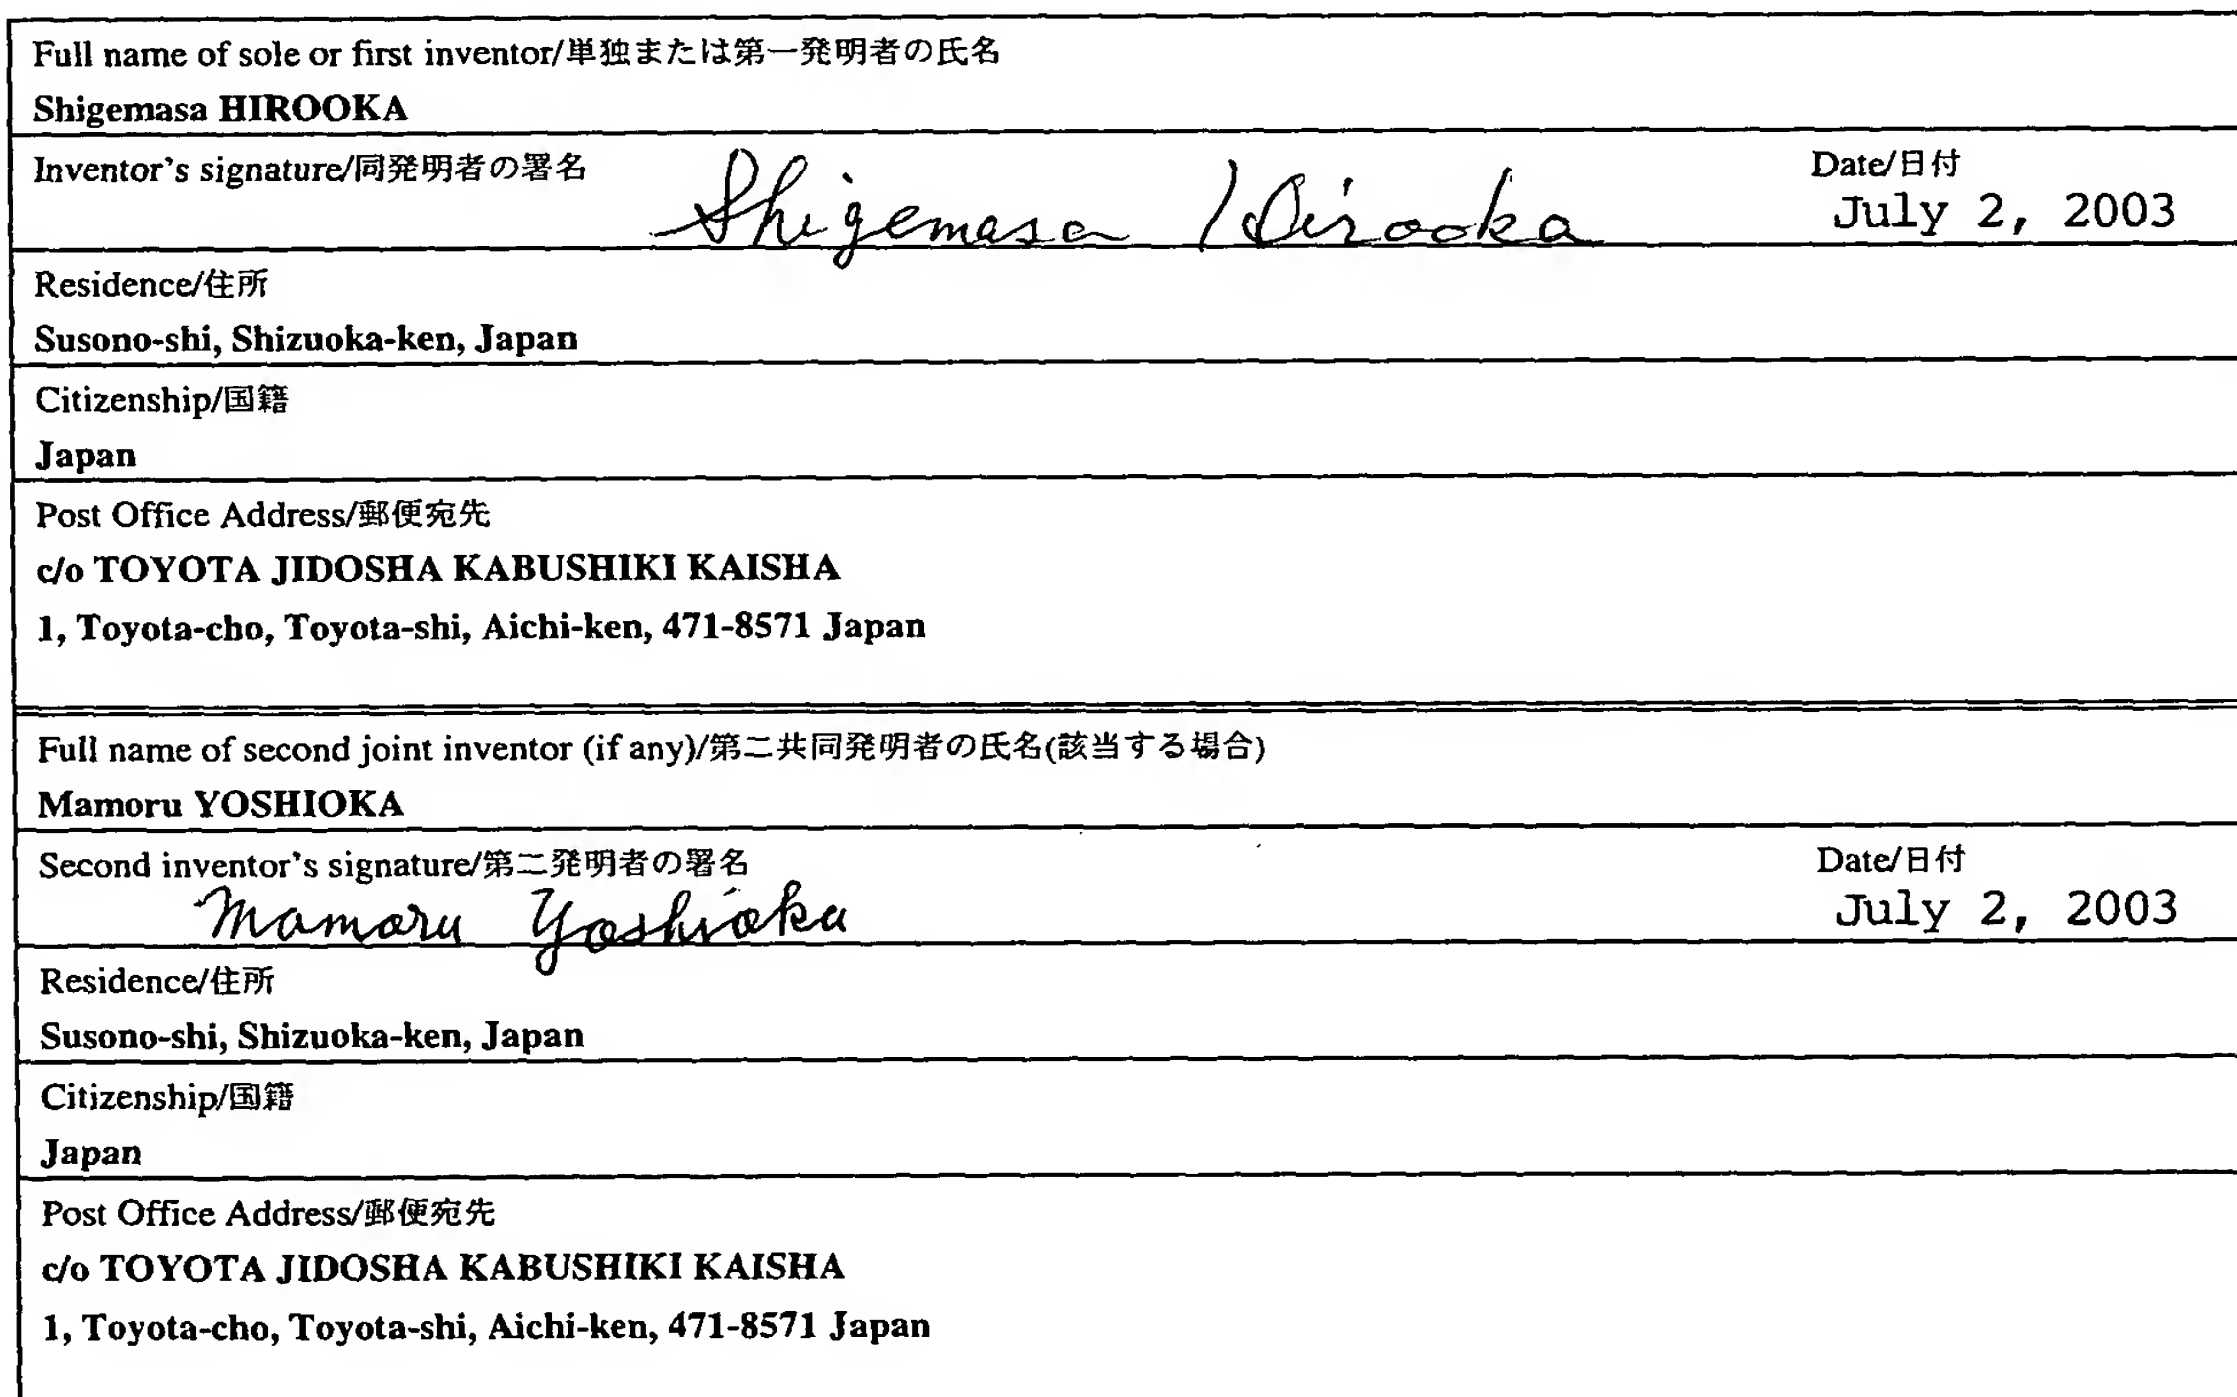 Full name of sole or first inventor/単独または第一発明者の氏名
Shigemasa HIROOKA
Inventor's signature/同発明者の署名
Shigemasa Hirooka
Date/日付
July 2, 2003
Residence/住所
Susono-shi, Shizuoka-ken, Japan
Citizenship/国籍
Japan
Post Office Address/郵便宛先
c/o TOYOTA JIDOSHA KABUSHIKI KAISHA
1, Toyota-cho, Toyota-shi, Aichi-ken, 471-8571 Japan
Full name of second joint inventor (if any)/第二共同発明者の氏名(該当する場合)
Mamoru YOSHIOKA
Second inventor's signature/第二発明者の署名
Mamoru Yoshioka
Date/日付
July 2, 2003
Residence/住所
Susono-shi, Shizuoka-ken, Japan
Citizenship/国籍
Japan
Post Office Address/郵便宛先
c/o TOYOTA JIDOSHA KABUSHIKI KAISHA
1, Toyota-cho, Toyota-shi, Aichi-ken, 471-8571 Japan